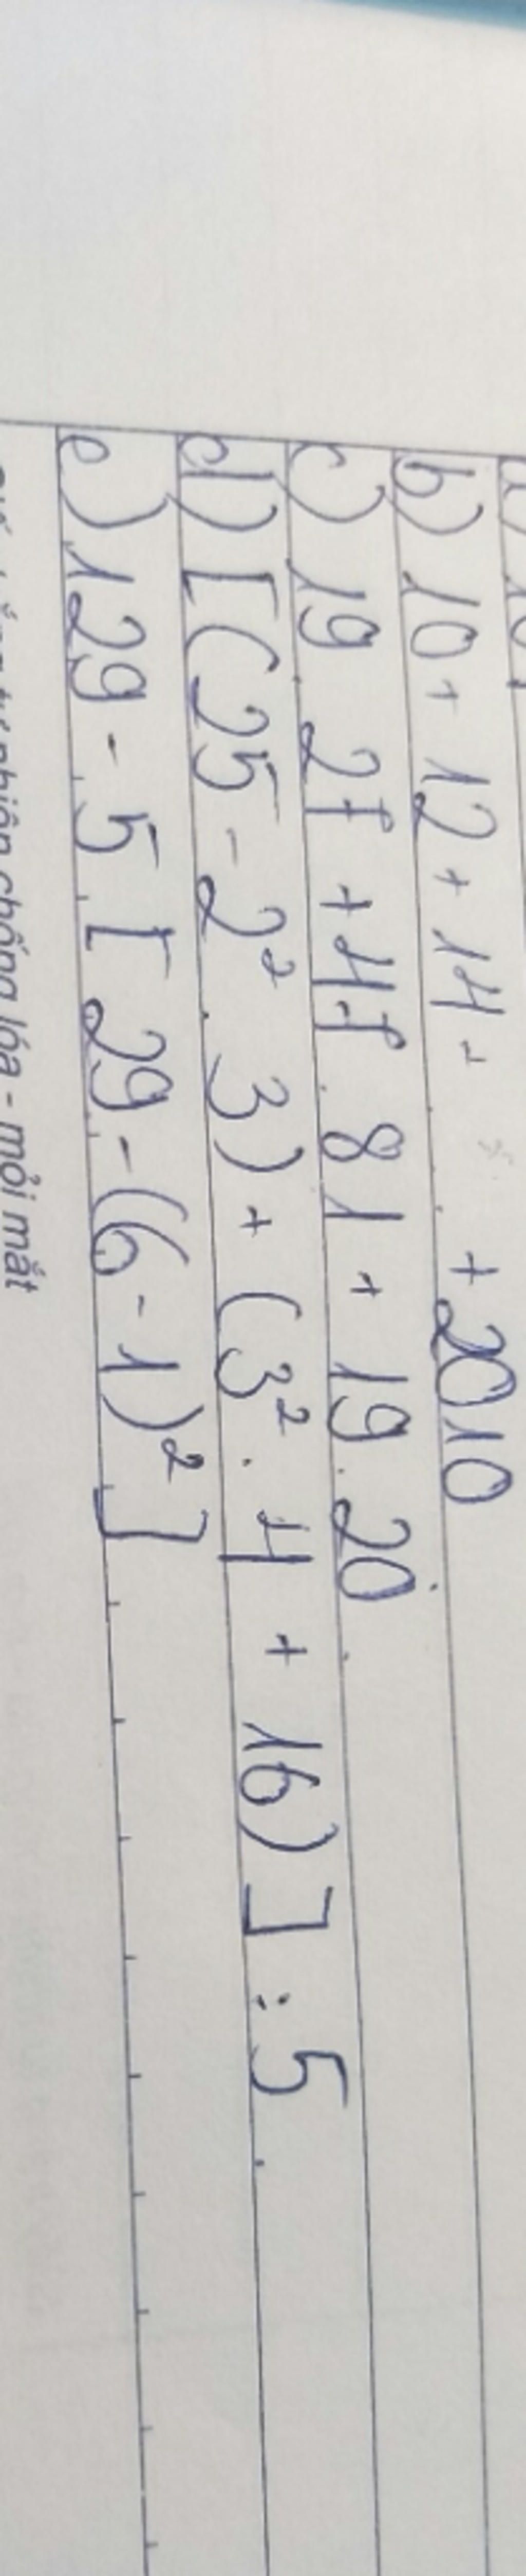 b) 10 + 12 + 14 + . . + 2010
c) 19 . 27 + 47 . 81 + 19 . 20
d) [(25 - 2² . 3) + (3² . 4 + 16)] : 5
e) 129 - 5 [ 29 - (6 - 1)² ]
chống lóa - mỏi mắt